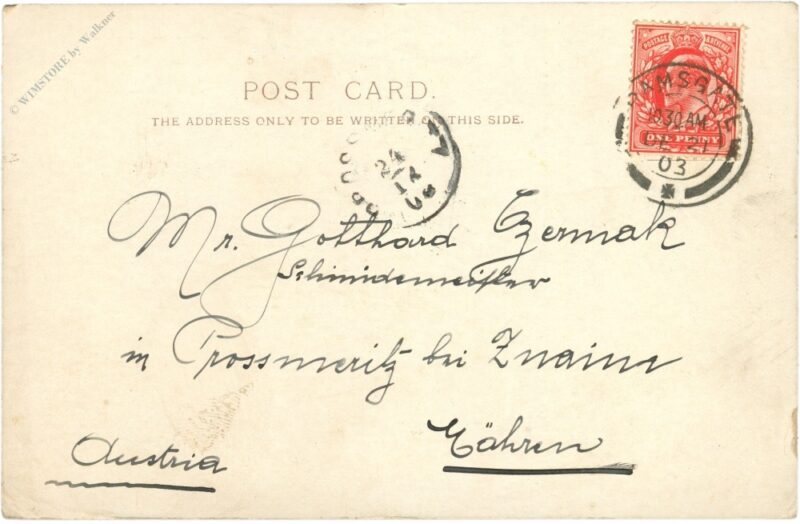 © WIMSTORE by Walkner
POSTAGE REVENUE
ONE PENNY
RAMSGATE
10.30 AM
DE 21
03
POST CARD.
THE ADDRESS ONLY TO BE WRITTEN ON THIS SIDE.
24
12
Mr. Gotthard Czermak
Schmidemeister
in Prossmeritz bei Znaim
Mähren
Austria